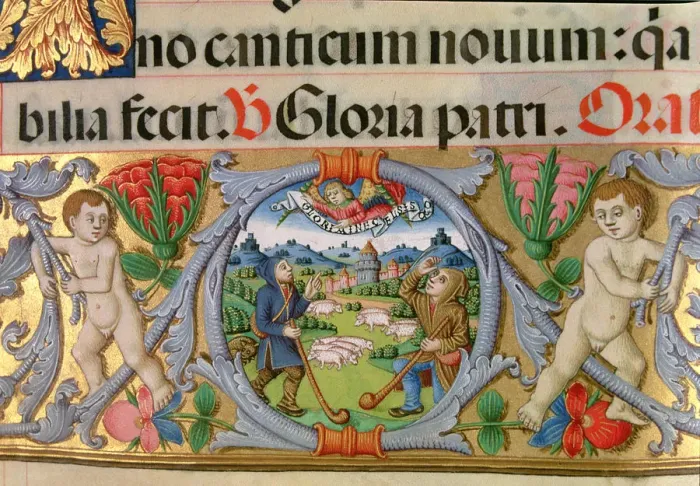 no canticum nouum: q̃a
bilia fecit. ℣ Gloria patri. Orat
GLORIA IN